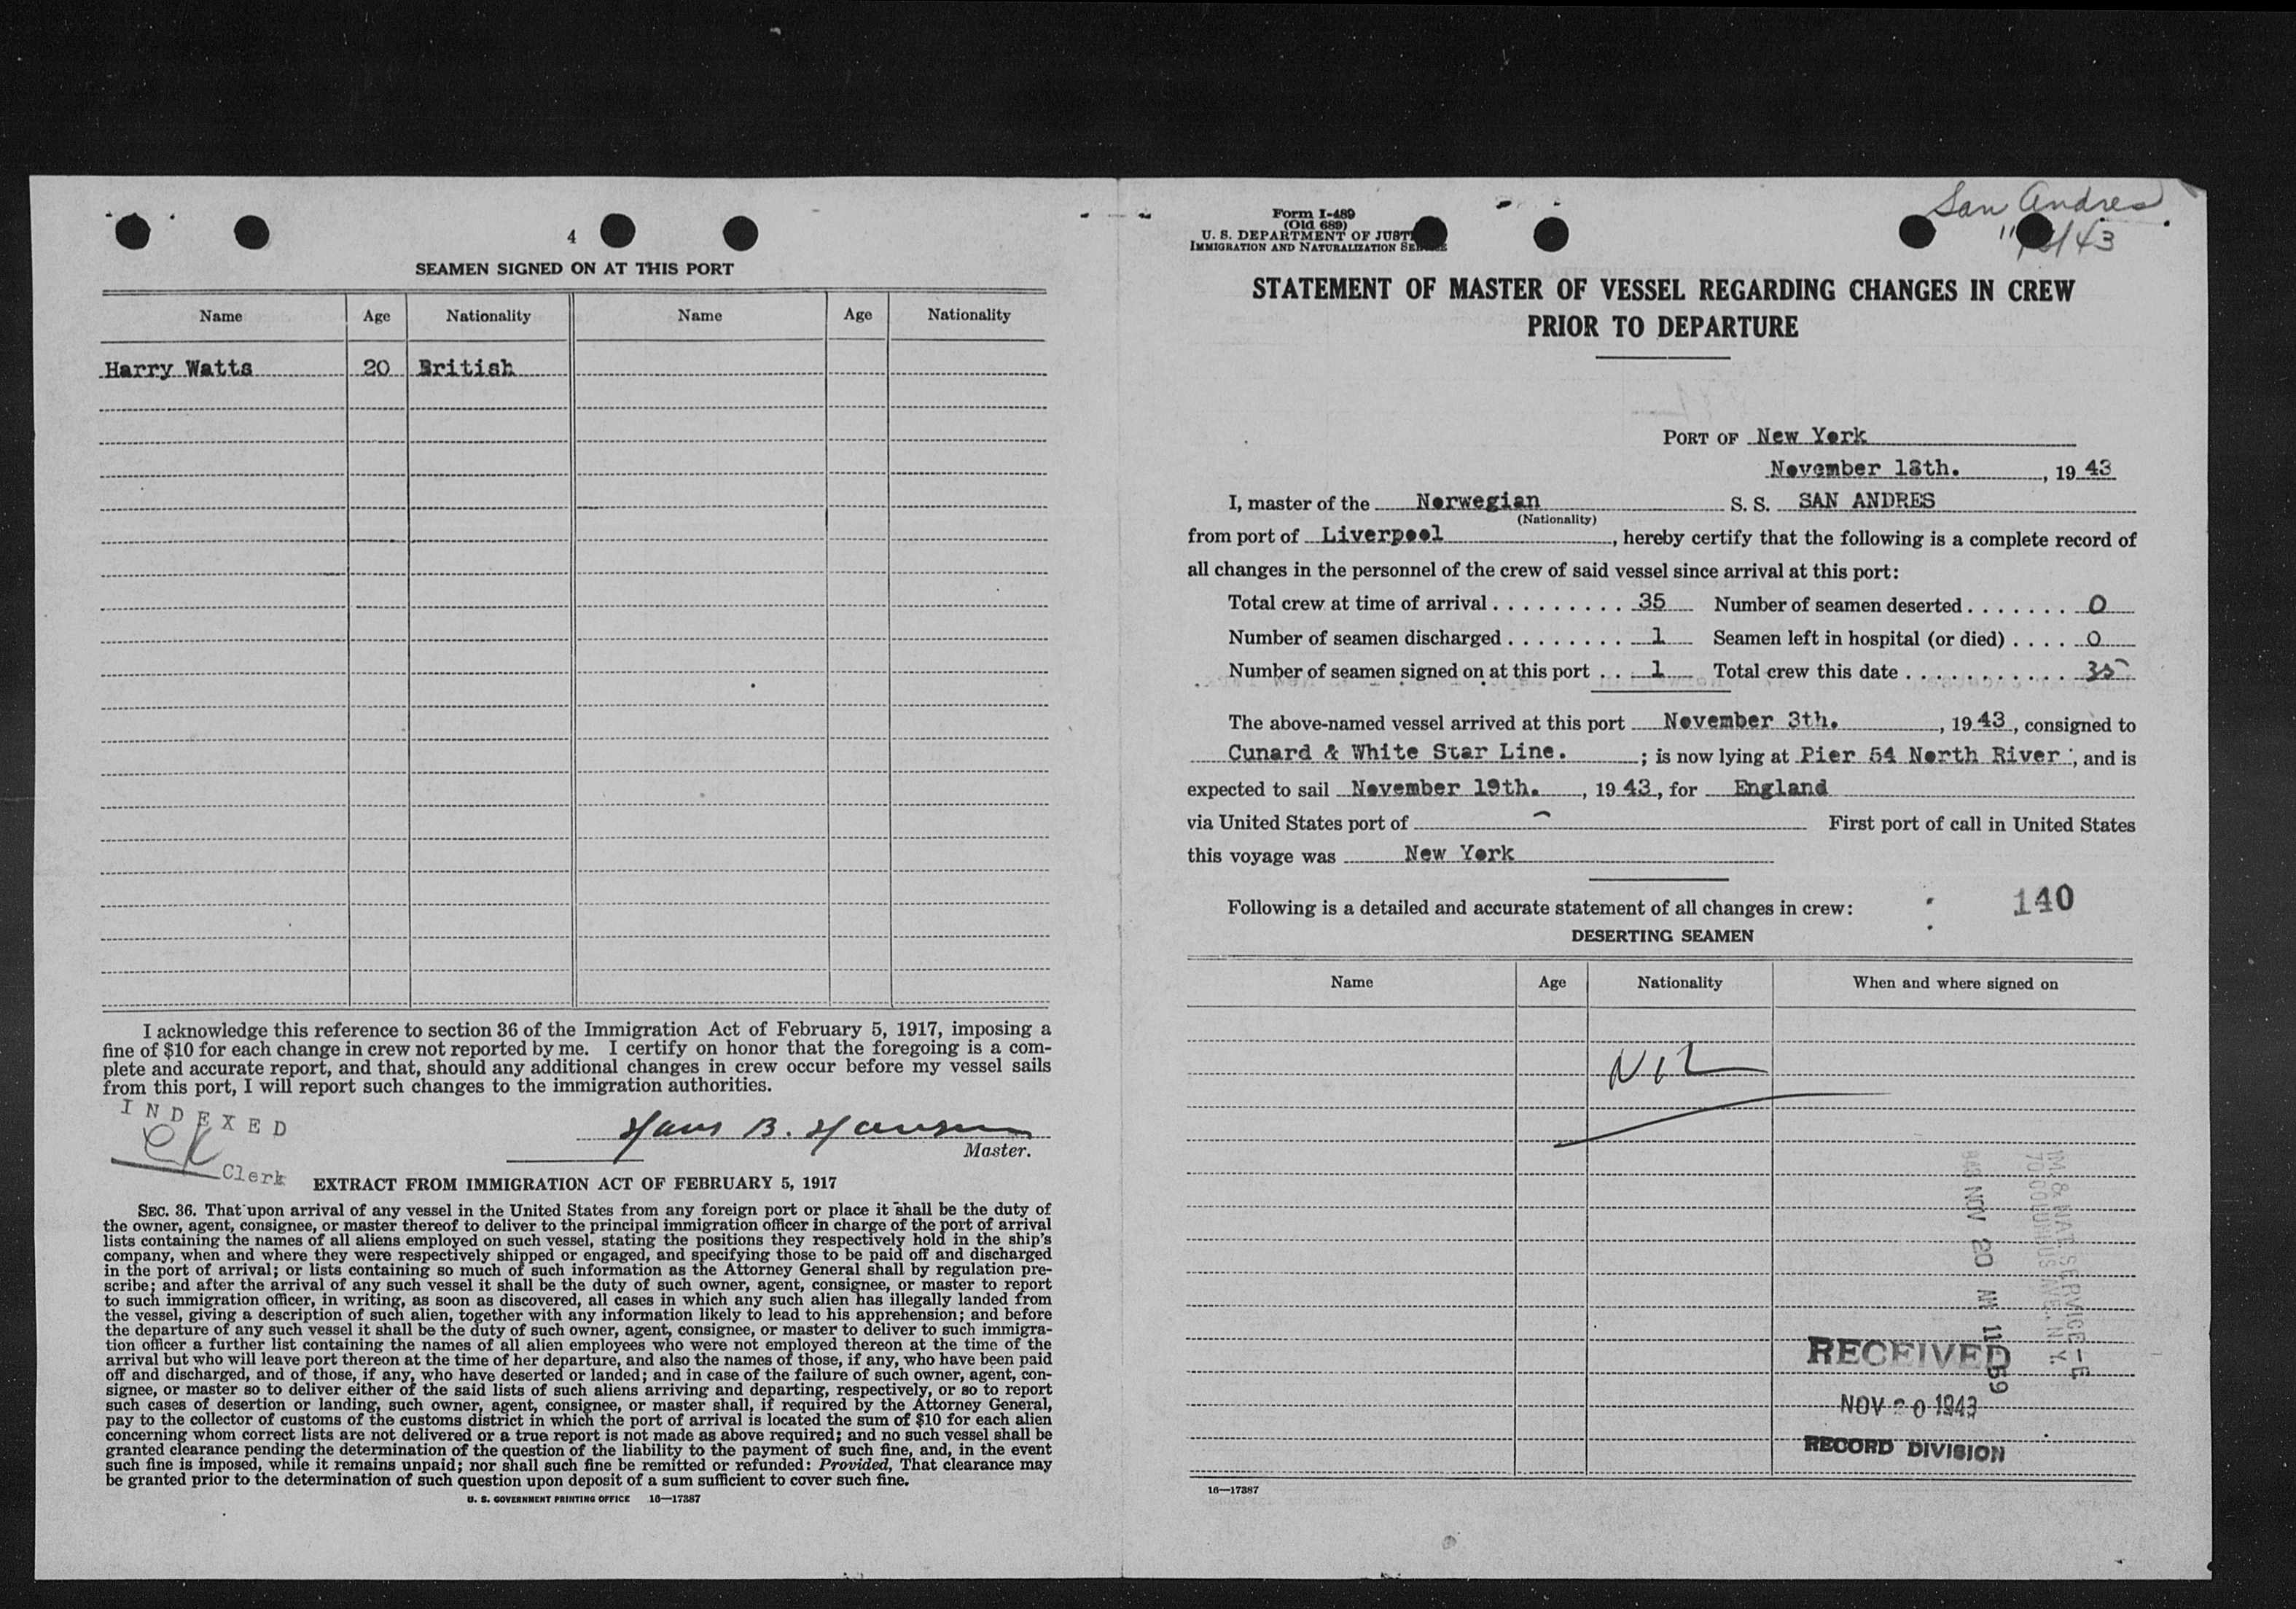 4
SEAMEN SIGNED ON AT THIS PORT
Name Age Nationality Name Age Nationality
Harry Watts 20 British
I acknowledge this reference to section 36 of the Immigration Act of February 5, 1917, imposing a
fine of $10 for each change in crew not reported by me. I certify on honor that the foregoing is a com-
plete and accurate report, and that, should any additional changes in crew occur before my vessel sails
from this port, I will report such changes to the immigration authorities.
INDEXED
Clerk
Hans B. Hansen
Master.
EXTRACT FROM IMMIGRATION ACT OF FEBRUARY 5, 1917
SEC. 36. That upon arrival of any vessel in the United States from any foreign port or place it shall be the duty of
the owner, agent, consignee, or master thereof to deliver to the principal immigration officer in charge of the port of arrival
lists containing the names of all aliens employed on such vessel, stating the positions they respectively hold in the ship's
company, when and where they were respectively shipped or engaged, and specifying those to be paid off and discharged
in the port of arrival; or lists containing so much of such information as the Attorney General shall by regulation pre-
scribe; and after the arrival of any such vessel it shall be the duty of such owner, agent, consignee, or master to report
to such immigration officer, in writing, as soon as discovered, all cases in which any such alien has illegally landed from
the vessel, giving a description of such alien, together with any information likely to lead to his apprehension; and before
the departure of any such vessel it shall be the duty of such owner, agent, consignee, or master to deliver to such immigra-
tion officer a further list containing the names of all alien employees who were not employed thereon at the time of the
arrival but who will leave port thereon at the time of her departure, and also the names of those, if any, who have been paid
off and discharged, and of those, if any, who have deserted or landed; and in case of the failure of such owner, agent, con-
signee, or master so to deliver either of the said lists of such aliens arriving and departing, respectively, or so to report
such cases of desertion or landing, such owner, agent, consignee, or master shall, if required by the Attorney General,
pay to the collector of customs of the customs district in which the port of arrival is located the sum of $10 for each alien
concerning whom correct lists are not delivered or a true report is not made as above required; and no such vessel shall be
granted clearance pending the determination of the question of the liability to the payment of such fine, and, in the event
such fine is imposed, while it remains unpaid; nor shall such fine be remitted or refunded: Provided, That clearance may
be granted prior to the determination of such question upon deposit of a sum sufficient to cover such fine.
U. S. GOVERNMENT PRINTING OFFICE 16—17387
San Andres
Form I-489
(Old 689)
U. S. DEPARTMENT OF JUST
IMMIGRATION AND NATURALIZATION SE
STATEMENT OF MASTER OF VESSEL REGARDING CHANGES IN CREW
PRIOR TO DEPARTURE
PORT OF New York
November 18th., 19 43
I, master of the Norwegian S. S. SAN ANDRES
(Nationality)
from port of Liverpool, hereby certify that the following is a complete record of
all changes in the personnel of the crew of said vessel since arrival at this port:
Total crew at time of arrival . . . . . . . . . 35 Number of seamen deserted . . . . . . . 0
Number of seamen discharged . . . . . . . . 1 Seamen left in hospital (or died) . . . . 0
Number of seamen signed on at this port . . 1 Total crew this date . . . . . . . . . . . . 35
The above-named vessel arrived at this port November 3th., 19 43, consigned to
Cunard & White Star Line. ; is now lying at Pier 54 North River, and is
expected to sail November 19th., 19 43, for England
via United States port of - First port of call in United States
this voyage was New York
Following is a detailed and accurate statement of all changes in crew: 140
DESERTING SEAMEN
Name Age Nationality When and where signed on
NIL
NOV 20 AM 11 59
RECEIVED
NOV 20 1943
RECORD DIVISION
16—17387